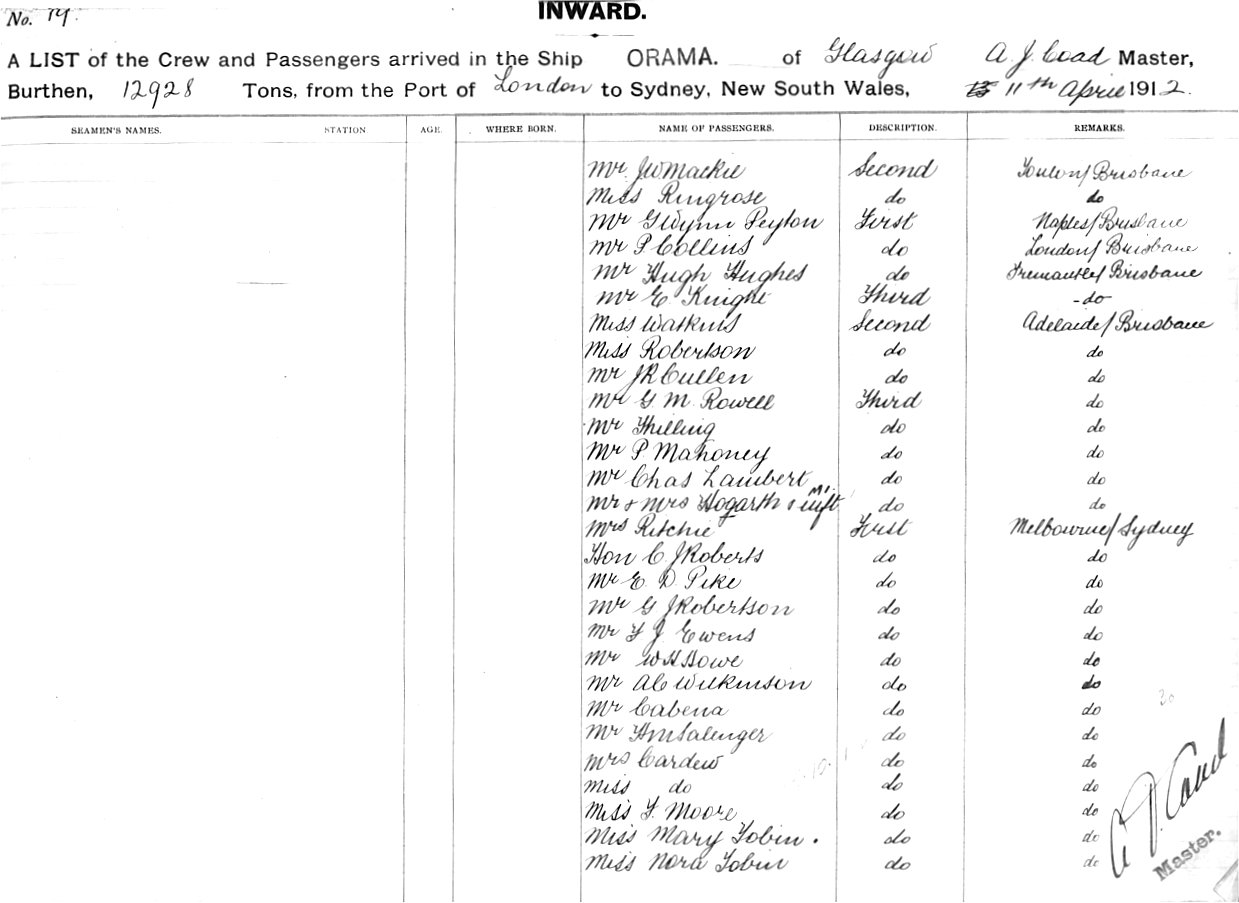 No. 14.
INWARD.
A LIST of the Crew and Passengers arrived in the Ship ORAMA. of Glasgow A. J. Coad Master,
Burthen, 12928 Tons, from the Port of London to Sydney, New South Wales, 11th April 1912.
SEAMEN'S NAMES. STATION AGE. WHERE BORN. NAME OF PASSENGERS. DESCRIPTION. REMARKS.
Mr. J W Mackie Second Toulon/Brisbane
Miss Ringrose do do
Mr G Wynn Peyton First Naples/Brisbane
Mr P Collins do London/Brisbane
Mr Hugh Hughes do Fremantle/Brisbane
Mr E Knight Third -do-
Miss Watkins Second Adelaide/Brisbane
Miss Robertson do do
Mr J R Cullen do do
Mr G. M. Rowell Third do
Mr Thilling do do
Mr P. Mahoney do do
Mr Chas Lambert do do
Mr & Mrs Hogarth & inft do do
Mrs Ritchie First Melbourne/Sydney
Hon C J Roberts do do
Mr E. D. Pike do do
Mr G J Robertson do do
Mr F J. Ewens do do
Mr W H Howe do do
Mr A C Wilkinson do do
Mr Cabena do do
Mr H M Salenger do do
Mrs Cardew do do
Miss do do do
Miss F. Moore do do
Miss Mary Tobin. do do
Miss Nora Tobin do do
30
A. J. Coad
Master.